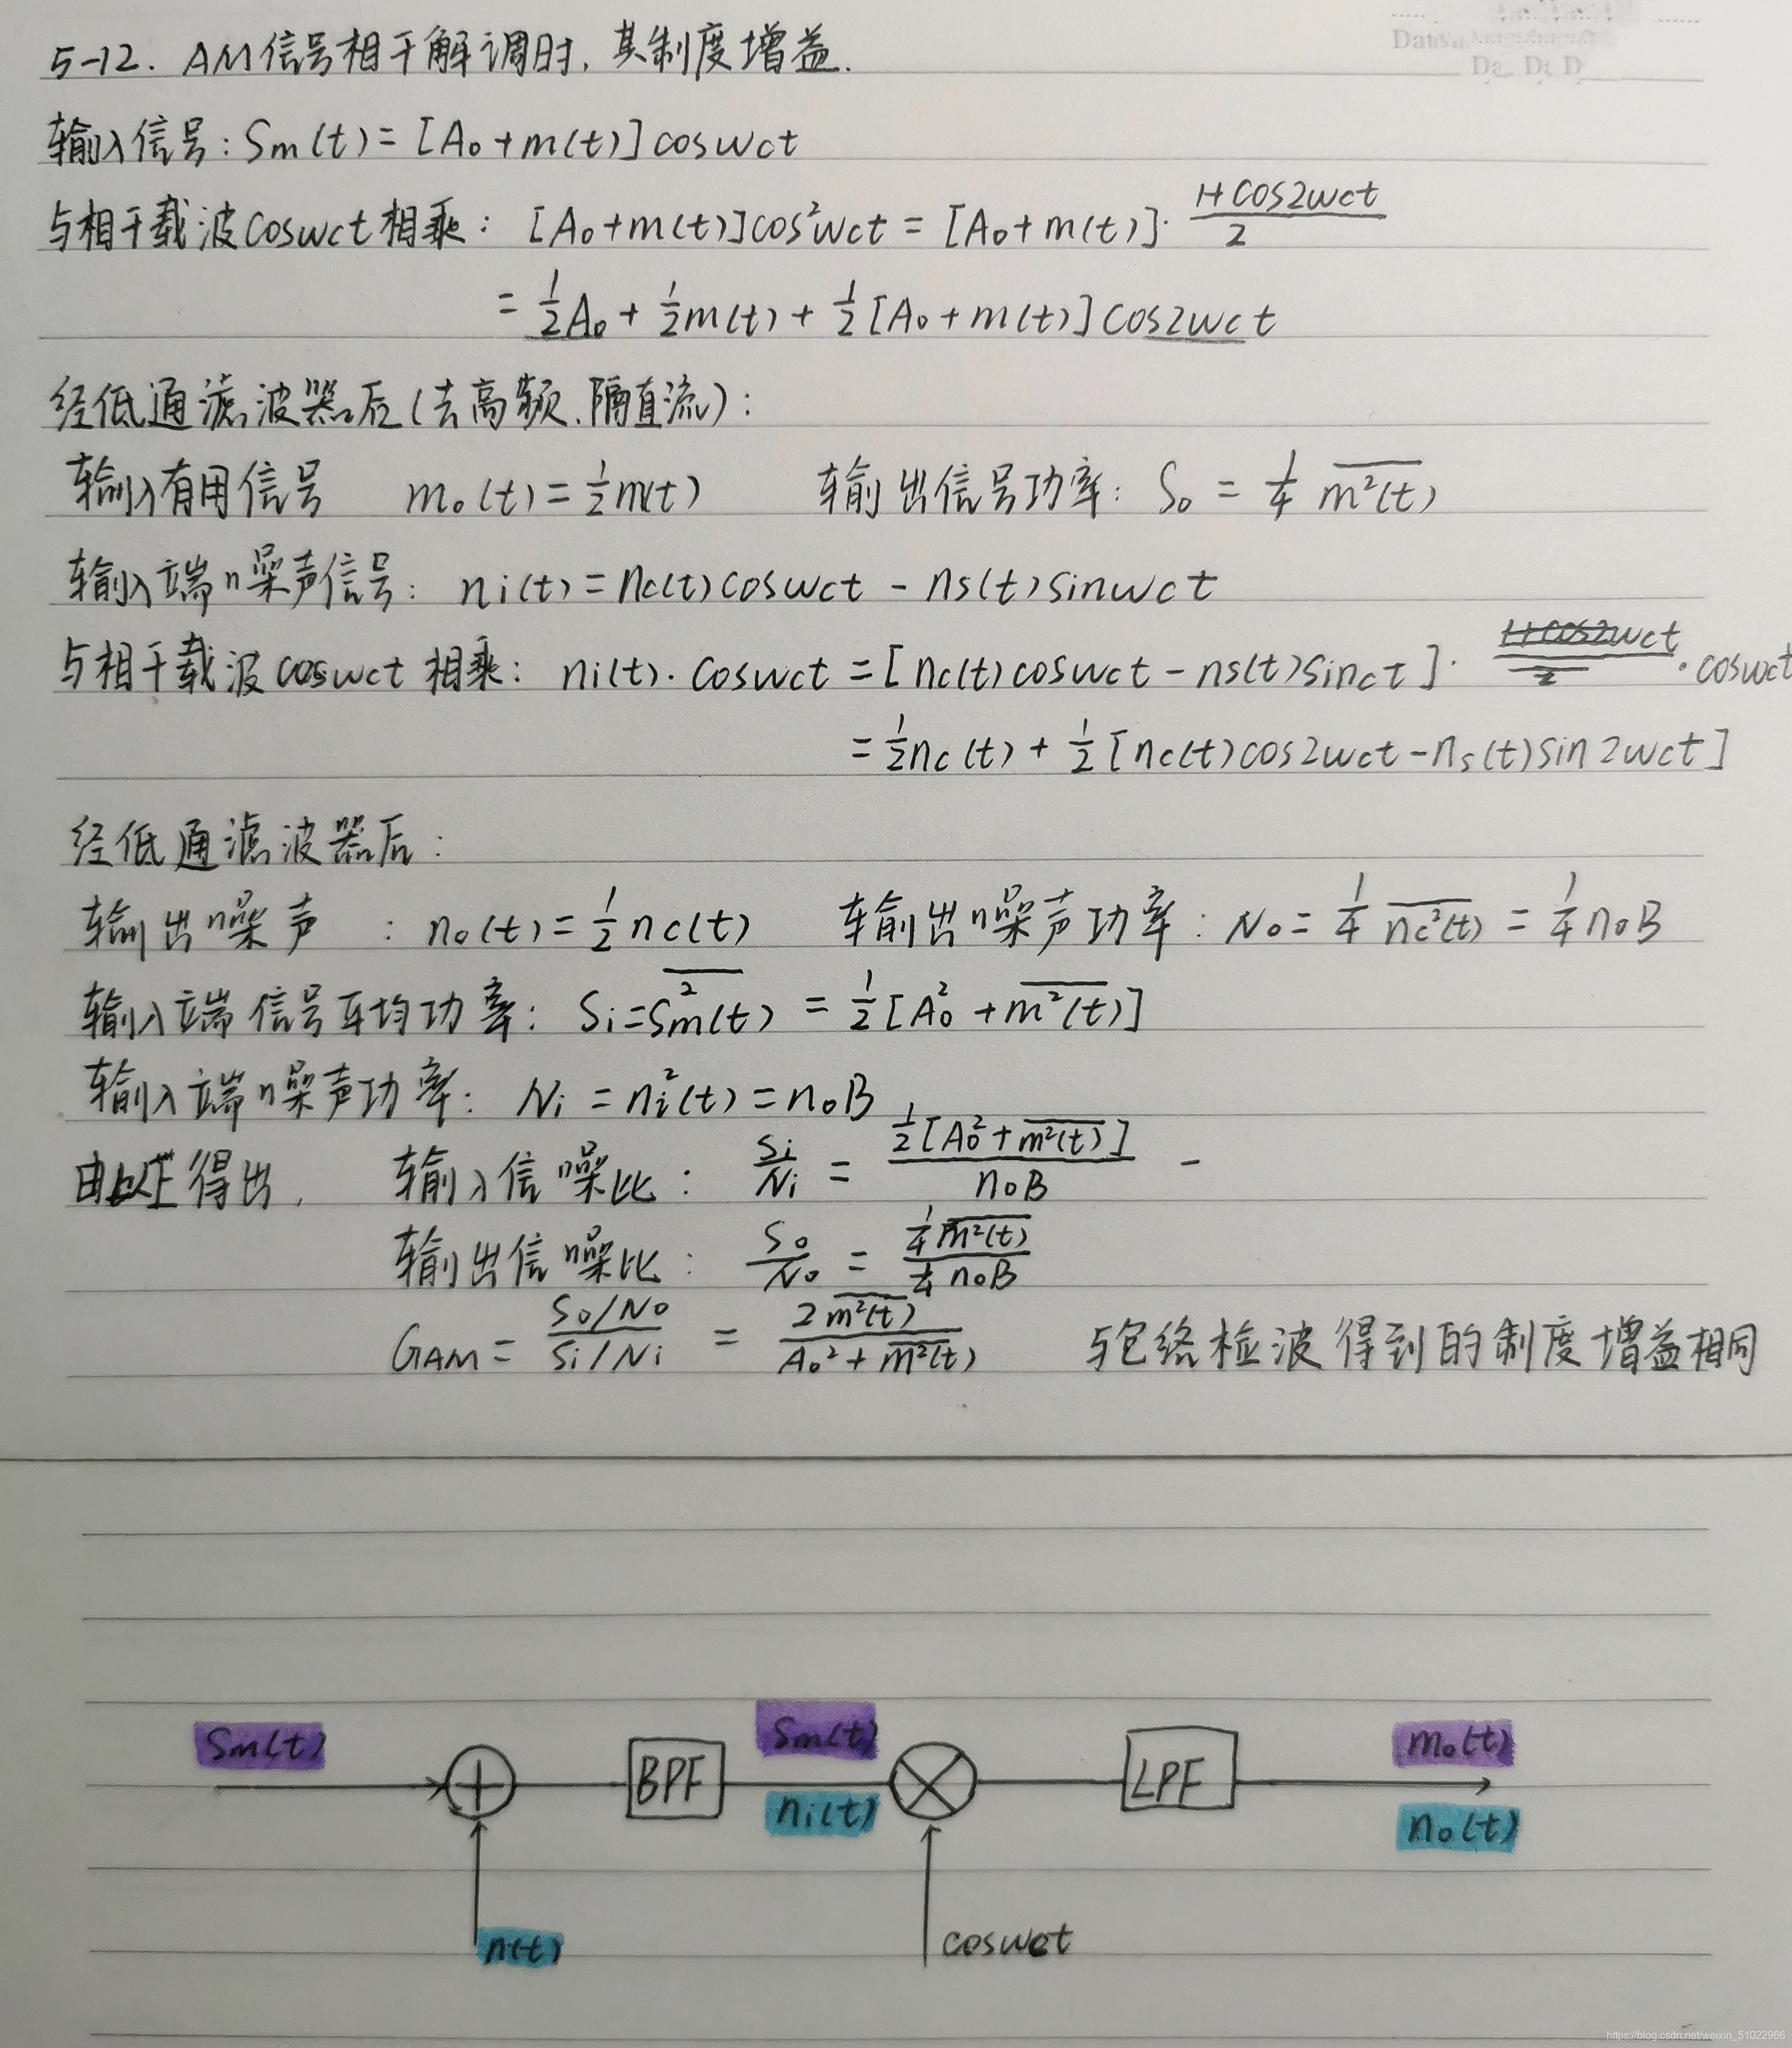 5-12. AM信号相干解调时, 其制度增益.
输入信号: Sm(t) = [A₀+m(t)]coswct
与相干载波coswct相乘: [A₀+m(t)]cos²wct = [A₀+m(t)]·(1+cos2wct)/2
= ½A₀ + ½m(t) + ½[A₀+m(t)]cos2wct
经低通滤波器后(去高频.隔直流):
输入有用信号 m₀(t)=½m(t) 输出信号功率: S₀ = ¼ \overline{m²(t)}
输入端噪声信号: ni(t)=nc(t)coswct - ns(t)sinwct
与相干载波coswct相乘: ni(t)·coswct = [nc(t)coswct - ns(t)sinct]·coswct
= ½nc(t) + ½[nc(t)cos2wct - ns(t)sin2wct]
经低通滤波器后:
输出噪声: n₀(t)=½nc(t) 输出噪声功率: N₀ = ¼ \overline{nc²(t)} = ¼n₀B
输入端信号平均功率: Si=\overline{Sm²(t)} = ½[A₀²+\overline{m²(t)}]
输入端噪声功率: Ni = ni²(t) = n₀B
由以上得出, 输入信噪比: Si/Ni = ½[A₀²+\overline{m²(t)}]/n₀B -
输出信噪比: S₀/N₀ = ¼\overline{m²(t)}/¼n₀B
GAM = (S₀/N₀)/(Si/Ni) = 2\overline{m²(t)}/(A₀²+\overline{m²(t)}) 与包络检波得到的制度增益相同
Sm(t) Sm(t) m₀(t)
BPF LPF
ni(t) n₀(t)
n(t) coswct
https://blog.csdn.net/weixin_51022966